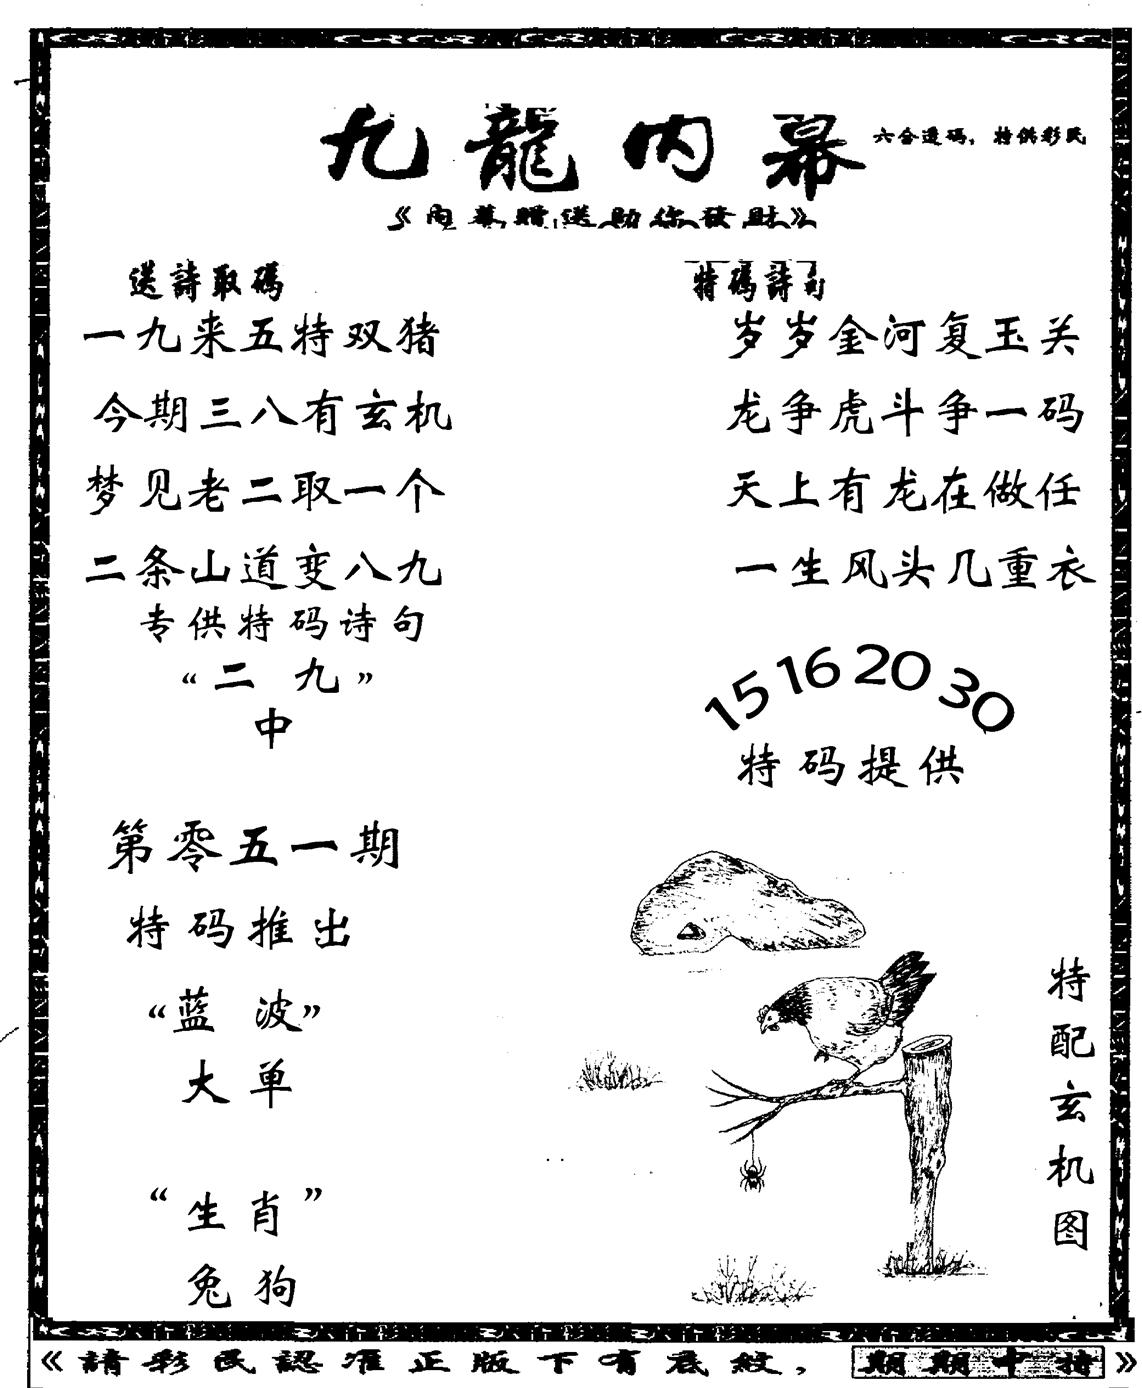 九龍内幕
六合透碼，特供彩民
《內幕贈送助你發財》
送詩取碼
一九来五特双猪
今期三八有玄机
梦见老二取一个
二条山道变八九
专供特码诗句
“二九”
中
第零五一期
特码推出
“蓝波”
大单
“生肖”
兔狗
特碼詩句
岁岁金河复玉关
龙争虎斗争一码
天上有龙在做任
一生风头几重衣
15 16 20 30
特码提供
特配玄机图
《請彩民認准正版下有底紋，期期中特》